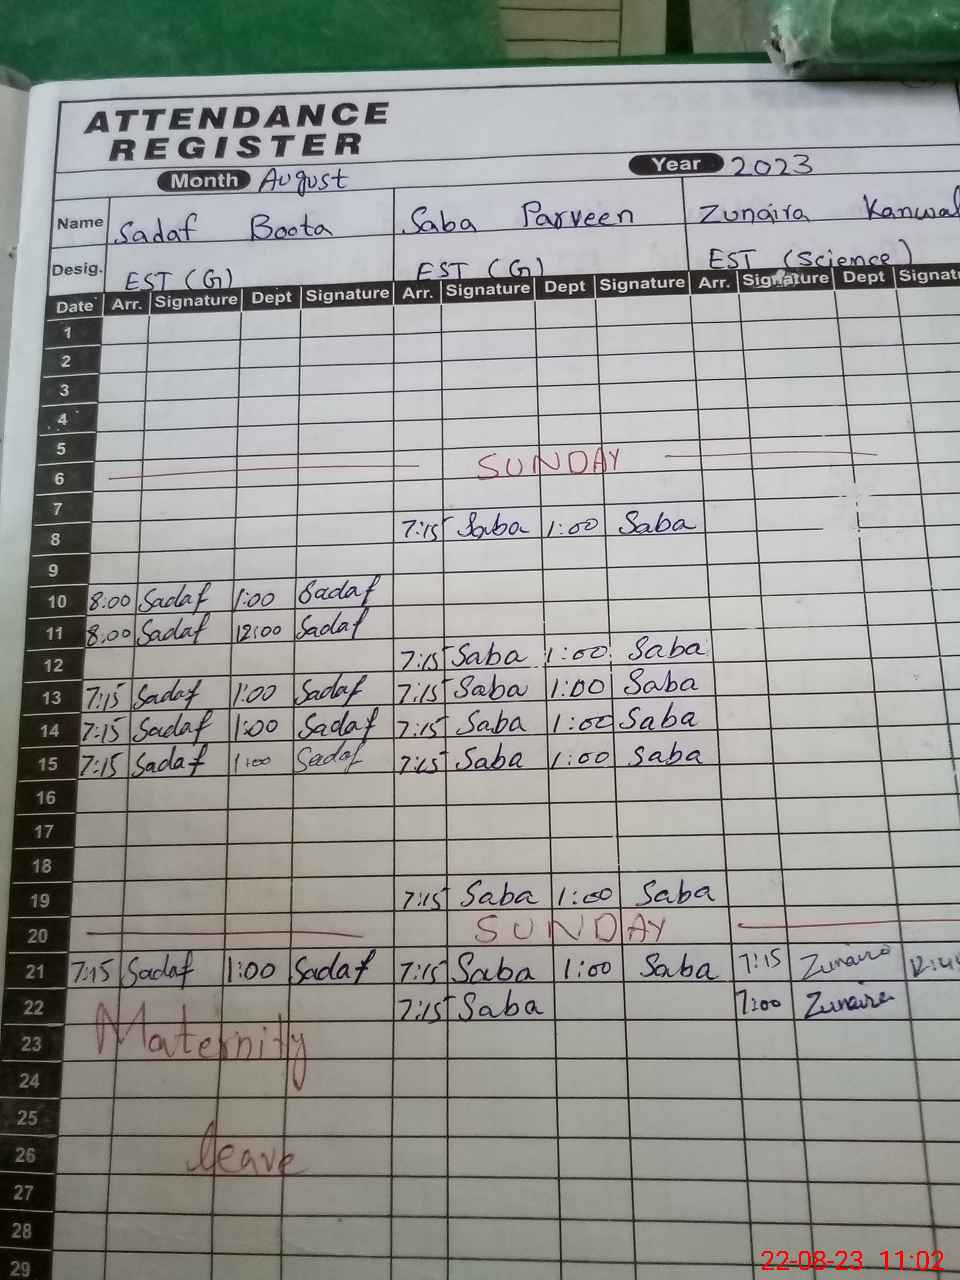 ATTENDANCE
REGISTER
Month August Year 2023
Name Sadaf Boota Saba Parveen Zunaira Kanwal
Desig. EST (G) EST (G) EST (Science)
Date Arr. Signature Dept Signature Arr. Signature Dept Signature Arr. Signature Dept Signatu
1
2
3
4
5
6 SUNDAY
7
8 7:15 Saba 1:00 Saba
9
10 8:00 Sadaf 1:00 Sadaf
11 8:00 Sadaf 12:00 Sadaf
12 7:15 Saba 1:00 Saba
13 7:15 Sadaf 1:00 Sadaf 7:15 Saba 1:00 Saba
14 7:15 Sadaf 1:00 Sadaf 7:15 Saba 1:00 Saba
15 7:15 Sadaf 1:00 Sadaf 7:15 Saba 1:00 Saba
16
17
18
19 7:15 Saba 1:00 Saba
20 SUNDAY
21 7:15 Sadaf 1:00 Sadaf 7:15 Saba 1:00 Saba 7:15 Zunaira
22 7:15 Saba 7:00 Zunaira
23 Maternity
24
25
26 leave
27
28
29
22-08-23 11:02